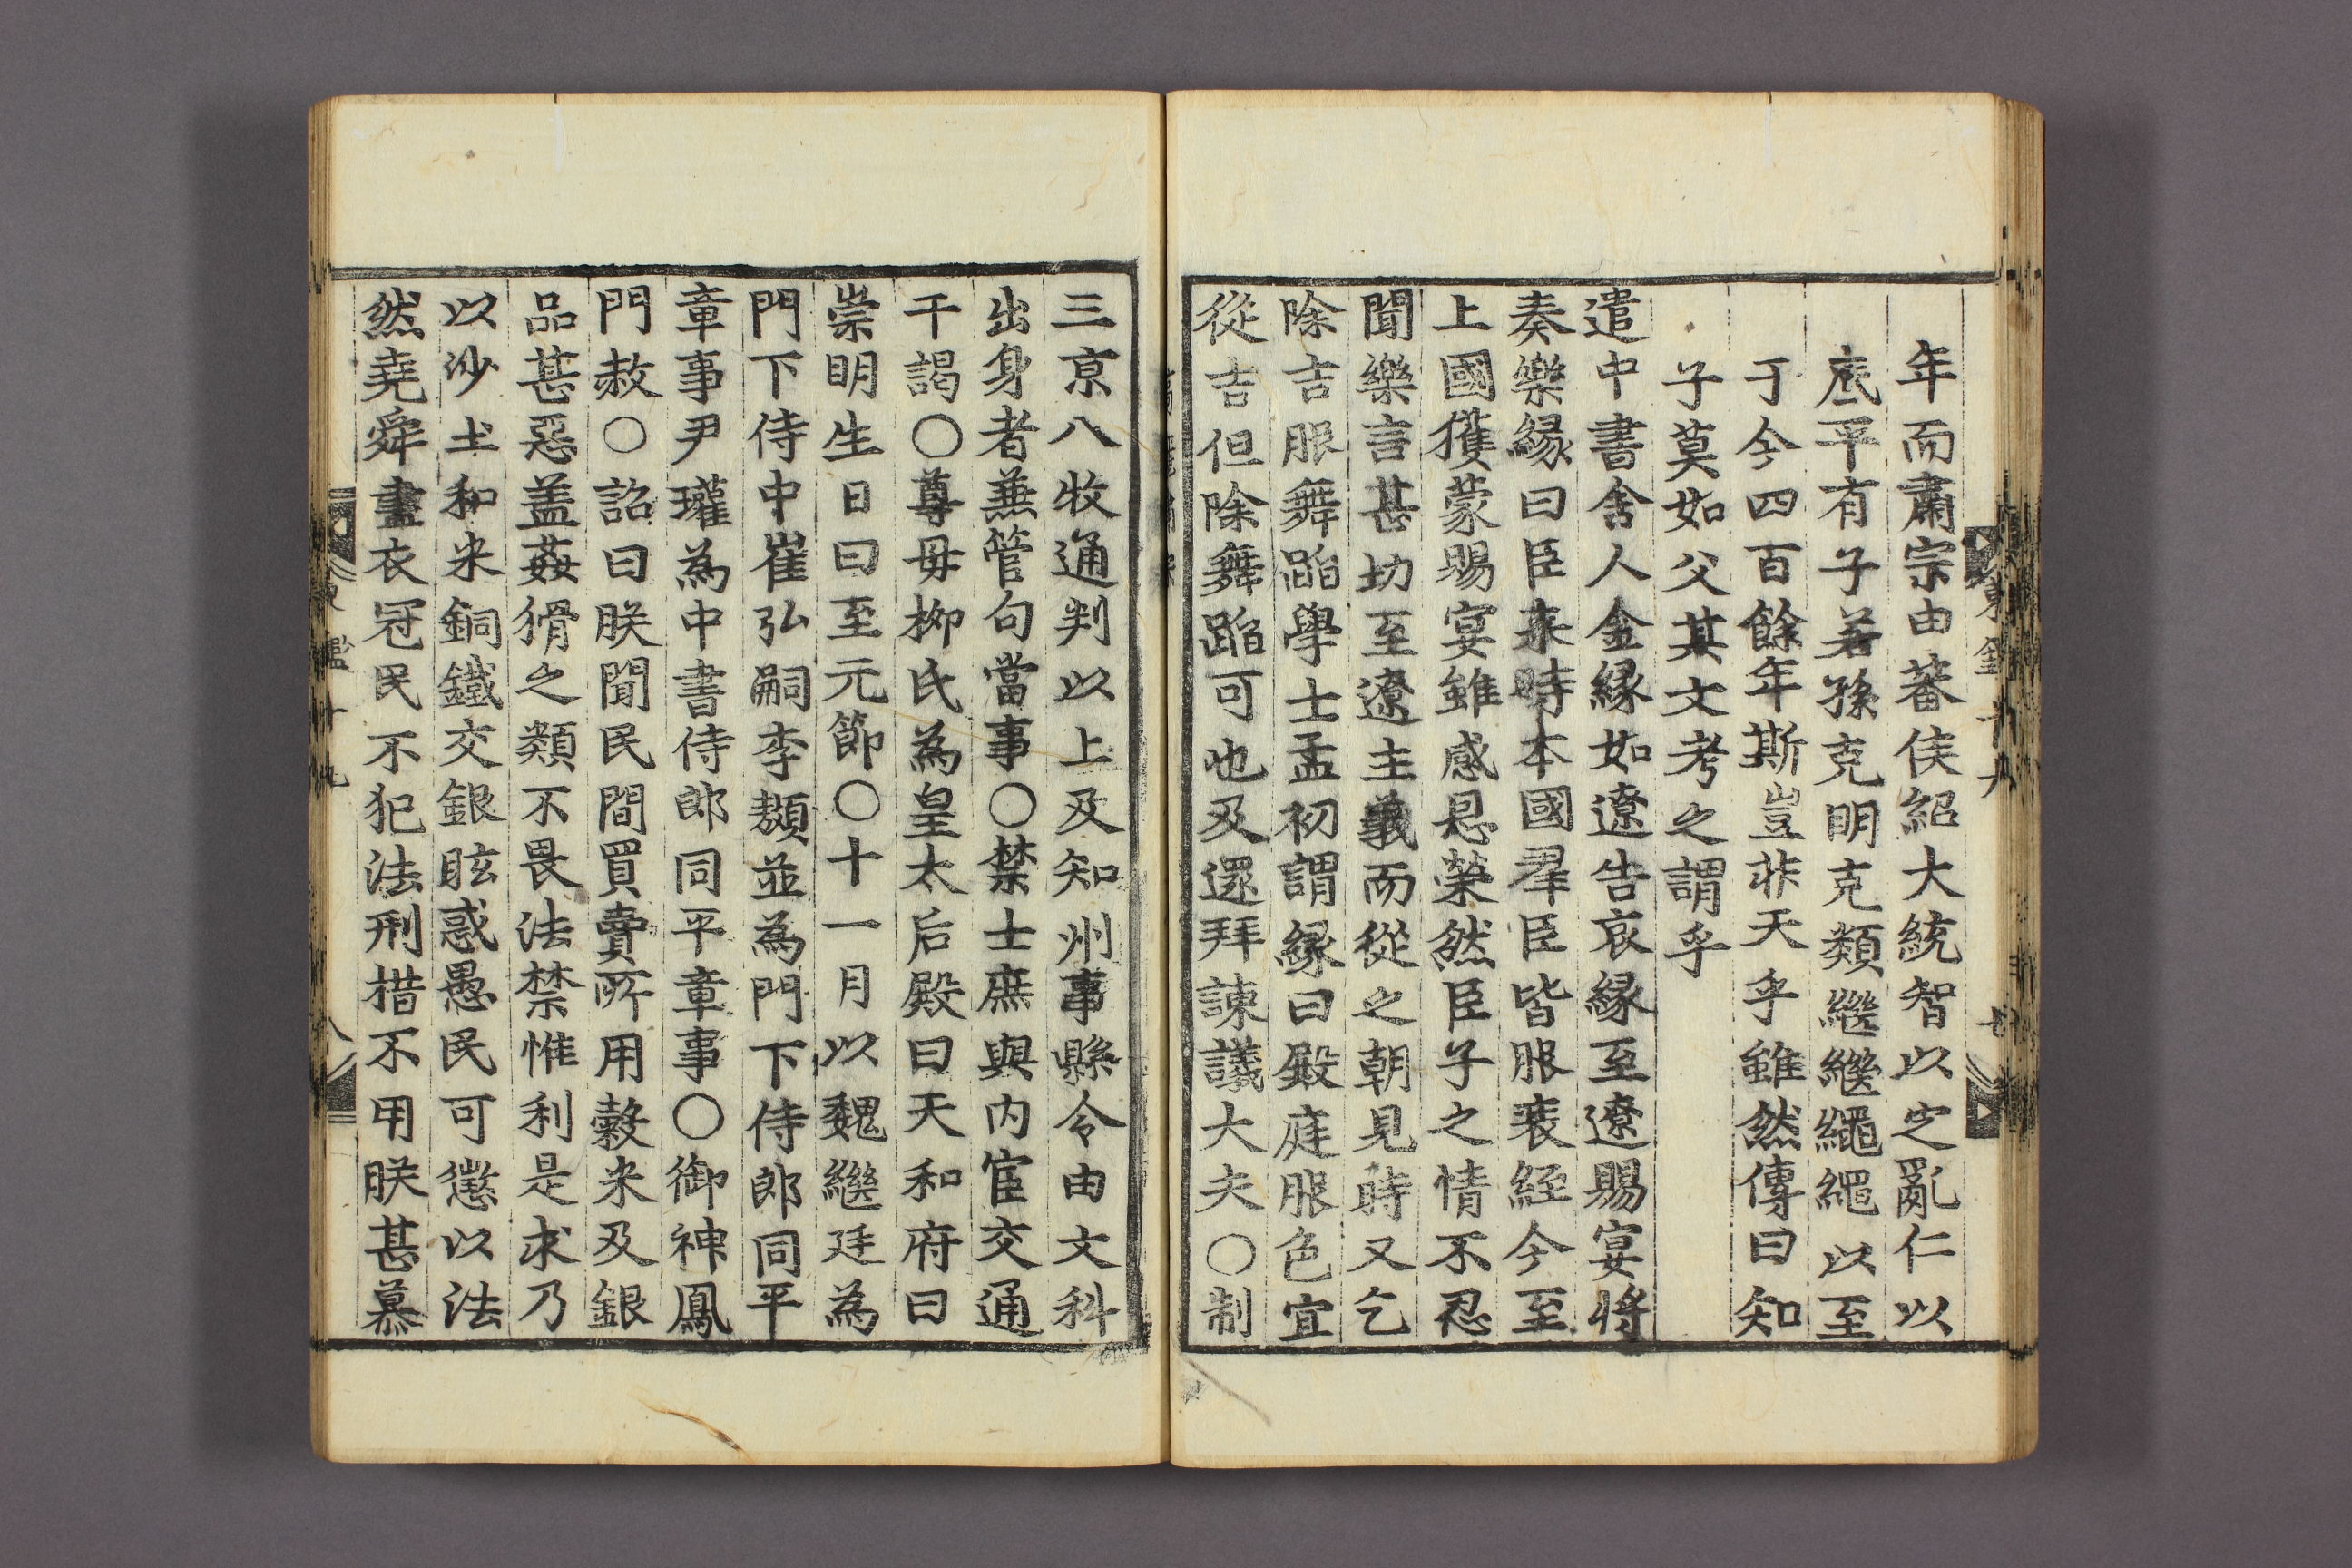 年而肅宗由蕃侯紹大統智以定亂仁以
底平有子若孫克明克類繼繼繩繩以至
于今四百餘年斯豈非天乎雖然傳曰知
子莫如父其文考之謂乎
遣中書舍人金緣如遼告哀緣至遼賜宴將
奏樂緣曰臣來時本國羣臣皆服衰絰今至
上國獲蒙賜宴雖感恩榮然臣子之情不忍
聞樂言甚切至遼主義而從之朝見時又乞
除吉服舞蹈學士孟初謂緣曰殿庭服色宜
從吉但除舞蹈可也及還拜諫議大夫○制
三京八牧通判以上及知州事縣令由文科
出身者兼管句當事○禁士庶與內宦交通
干謁○尊母柳氏為皇太后殿曰天和府曰
崇明生日曰至元節○十一月以魏繼廷為
門下侍中崔弘嗣李䫨並為門下侍郎同平
章事尹瓘為中書侍郎同平章事○御神鳳
門赦○詔曰朕聞民間買賣所用穀米及銀
品甚惡盖姦猾之類不畏法禁惟利是求乃
以沙土和米銅鐵交銀眩惑愚民可懲以法
然堯舜畫衣冠民不犯法刑措不用朕甚慕